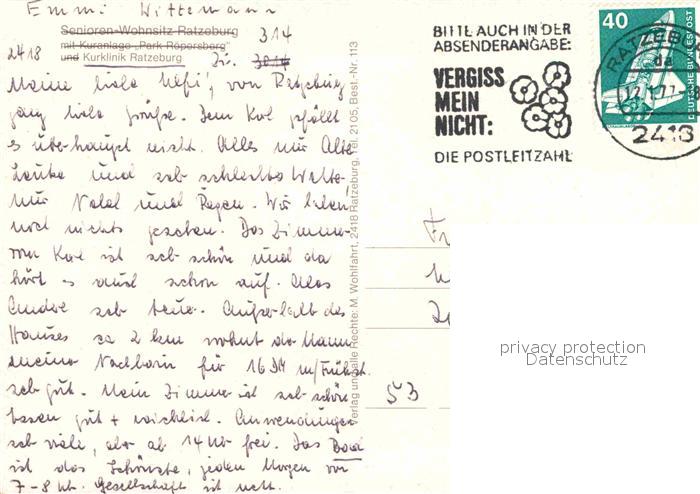 Emmi Wittemann
Senioren-Wohnsitz Ratzeburg
314
mit Kuranlage „Park Röpersberg"
2418 und Kurklinik Ratzeburg
Meine liebe Uefi, von Ratzeburg
ganz liebe Grüße. Dem Karl gefällt
es überhaupt nicht. Alles nur Alte
Leute und sehr schlechtes Wetter
nur Nebel und Regen. Wir haben
noch nichts gesehen. Das Zimmer
von Karl ist sehr schön und da
hört es auch schon auf. Alles
Andere sehr teuer. Außerhalb des
Hauses ca 2 km wohnt der Mann
meine Nachbarin für 16 DM m/Frühst.
sehr gut. Mein Zimmer ist sehr schön
Essen gut + reichlich. Anwendungen
sehr viele, aber ab 14 Uhr frei. Das Bad
ist das Schönste, jeden Morgen von
7-8 Uhr. Gesellschaft ist nett.
Verlag und alle Rechte: M. Wohlfahrt, 2418 Ratzeburg, Tel. 2105, Best.-Nr. 113
BITTE AUCH IN DER
ABSENDERANGABE:
VERGISS
MEIN
NICHT:
DIE POSTLEITZAHL
40
DEUTSCHE BUNDESPOST
RATZEBU
2418
53
privacy protection
Datenschutz